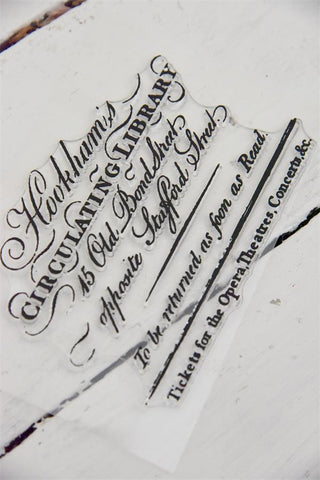 Hookham's
CIRCULATING LIBRARY
15 Old Bond Street
opposite Stafford Street
To be returned as soon as Read
Tickets for the Opera, Theatres, Concerts, &c.